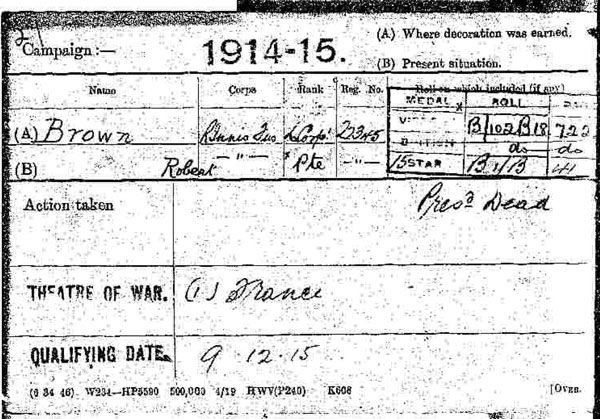 Campaign :— 1914-15. (A) Where decoration was earned.
(B) Present situation.
Name Corps Rank Reg. No. Roll on which included (if any)
MEDAL ROLL PAGE
(A) Brown R. Innis Fus L Corpl 22345 B/102 B18 722
do do
(B) Robert — " — Pte — " — 15 STAR B 1/B
Action taken Presd Dead
THEATRE OF WAR. (1) France
QUALIFYING DATE. 9 . 12 . 15
(6 34 46) W234—HP5590 500,000 4/19 HWV(P240) K608 [OVER.